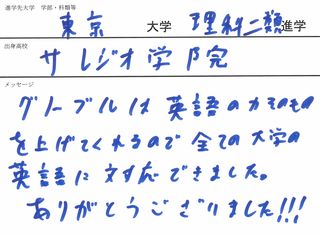 進学先大学 学部・科類等
東京 大学 理科二類 進学
出身高校
サレジオ学院
メッセージ
グノーブルは英語の力そのもの
を上げてくれるので全ての大学の
英語に対応できました。
ありがとうございました!!!